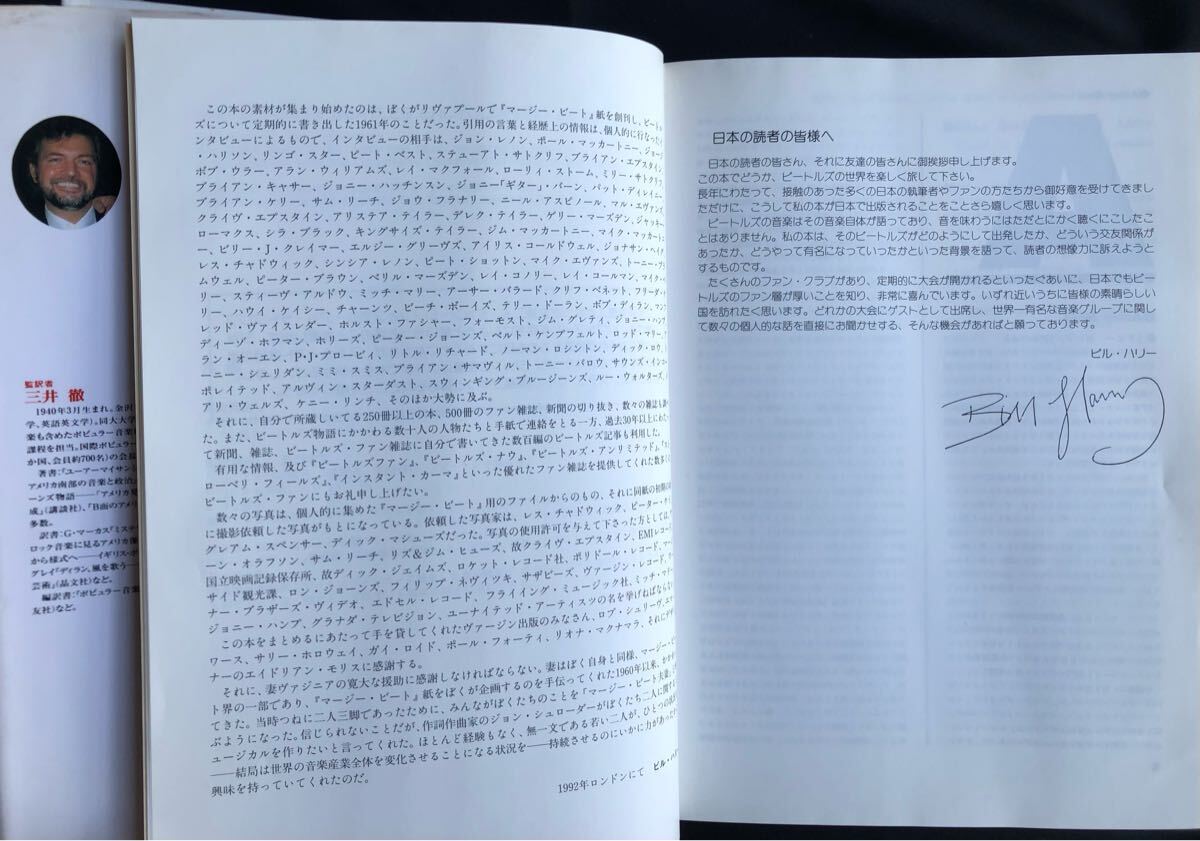 監訳者
三井 徹
1940年3月生まれ。金沢
学、英語英文学)。同大大学
楽も含めたポピュラー音楽
課程を担当。国際ポピュラー
か国、会員約700名)の会長
著書:「ユーアーマイサン
アメリカ南部の音楽と政治」
ーンズ物語——「アメリカ
成」(講談社)、「B面のアメ
多数。
訳書:G・マーカス「ミステ
ロック音楽に見るアメリカ像
から様式へ——イギリス・ポ
グレイ「ディラン、風を歌う——
芸術」(晶文社)など。
編訳書:「ポピュラー音楽
友社)など。
この本の素材が集まり始めたのは、ぼくがリヴァプールで『マージー・ビート』紙を創刊し、ビートル
ズについて定期的に書き出した1961年のことだった。引用の言葉と経歴上の情報は、個人的に行なった
ンタビューによるもので、インタビューの相手は、ジョン・レノン、ポール・マッカートニー、ジョー
・ハリソン、リンゴ・スター、ピート・ベスト、ステューアト・サトクリフ、ブライアン・エプスタイン
ボブ・ウラー、アラン・ウィリアムズ、レイ・マクフォール、ローリィ・ストーム、ミリー・サトクリフ
ブライアン・キャサー、ジョニー・ハッチンスン、ジョニー「ギター」・バーン、パット・ディレイニ
ブライアン・ケリー、サム・リーチ、ジョウ・フラナリー、ニール・アスピノール、マル・エヴァンズ
クライヴ・エプスタイン、アリステア・テイラー、デレク・テイラー、ゲリー・マーズデン、ジャッキー
ローマクス、シラ・ブラック、キングサイズ・テイラー、ジム・マッカートニー、マイク・マッカート
ー、ビリー・J・クレイマー、エルジー・グリーヴズ、アイリス・コールドウェル、ジョナサン・ヘイ
レス・チャドウィック、シンシア・レノン、ピート・ショットン、マイク・エヴァンズ、トーニー・
ムウェル、ピーター・ブラウン、ベリル・マーズデン、レイ・コノリー、レイ・コールマン、マイク・
リー、スティーヴ・アルドウ、ミッチ・マリー、アーサー・バラード、クリフ・ベネット、フリーダ・
リー、ハウイ・ケイシー、チャーンツ、ビーチ・ボーイズ、テリー・ドーラン、ボブ・ディラン、マン
レッド、ヴァイスレダー、ホルスト・ファシャー、フォーモスト、ジム・グレティ、ジョニー・ハン
ディーゾ・ホフマン、ホリーズ、ピーター・ジョーンズ、ベルト・ケンプフェルト、ロッド・マリー、
ラン・オーエン、P・J・プロービィ、リトル・リチャード、ノーマン・ロシントン、ディック・ロウ、
ーニー・シェリダン、ミミ・スミス、ブライアン・サマヴィル、トーニー・バロウ、サウンズ・インコー
ポレイテッド、アルヴィン・スターダスト、スウィンギング・ブルージーンズ、ルー・ウォルターズ、
アリ・ウェルズ、ケニー・リンチ、そのほか大勢に及ぶ。
それに、自分で所蔵している250冊以上の本、500冊のファン雑誌、新聞の切り抜き、数々の雑誌も
た。また、ビートルズ物語にかかわる数十人の人物たちと手紙で連絡をとる一方、過去30年以上にわた
て新聞、雑誌、ビートルズ・ファン雑誌に自分で書いてきた数百編のビートルズ記事も利用した。
有用な情報、及び『ビートルズファン』、『ビートルズ・ナウ』、『ビートルズ・アンリミテッド』、『
ローベリ・フィールズ』、『インスタント・カーマ』といった優れたファン雑誌を提供してくれた数多くの
ビートルズ・ファンにもお礼申し上げたい。
数々の写真は、個人的に集めた『マージー・ビート』用のファイルからのもの、それに同紙の初期の
に撮影依頼した写真がもとになっている。依頼した写真家は、レス・チャドウィック、ピーター・ケ
グレアム・スペンサー、ディック・マシューズだった。写真の使用許可を与えて下さった方としては、
ーン・オラフソン、サム・リーチ、リズ&ジム・ヒューズ、故クライヴ・エプスタイン、EMIレコー
国立映画記録保存所、故ディック・ジェイムズ、ロケット・レコード社、ポリドール・レコード、マー
サイド観光課、ロン・ジョーンズ、フィリップ・ネヴィツキ、サザビーズ、ヴァージン・レコード、ワ
ナー・ブラザーズ・ヴィデオ、エドセル・レコード、フライイング・ミュージック社、ミッチ・マリー
ジョニー・ハンプ、グラナダ・テレビジョン、ユーナイテッド・アーティスツの名を挙げねばならない
この本をまとめるにあたって手を貸してくれたヴァージン出版のみなさん、ロブ・シュリーヴ、
ワース、サリー・ホロウェイ、ガイ・ロイド、ポール・フォーティ、リオナ・マクナマラ、それにデザイ
ナーのエイドリアン・モリスに感謝する。
それに、妻ヴァジニアの寛大な援助に感謝しなければならない。妻はぼく自身と同様、マージー・ビー
ト界の一部であり、『マージー・ビート』紙をぼくが企画するのを手伝ってくれた1960年以来、
てきた。当時つねに二人三脚であったために、みんながぼくたちのことを『マージー・ビート夫妻』と
ぶようになった。信じられないことだが、作詞作曲家のジョン・シュローダーがぼくたち二人に関する
ュージカルを作りたいと言ってくれた。ほとんど経験もなく、無一文である若い二人が、ひとつの
——結局は世界の音楽産業全体を変化させることになる状況を——持続させるのにいかに力があったか
興味を持っていてくれたのだ。
1992年ロンドンにて ビル・ハ
日本の読者の皆様へ
日本の読者の皆さん、それに友達の皆さんに御挨拶申し上げます。
この本でどうか、ビートルズの世界を楽しく旅して下さい。
長年にわたって、接触のあった多くの日本の執筆者やファンの方たちから御好意を受けてきまし
ただけに、こうして私の本が日本で出版されることをことさら嬉しく思います。
ビートルズの音楽はその音楽自体が語っており、音を味わうにはただとにかく聴くにこしたこ
とはありません。私の本は、そのビートルズがどのようにして出発したか、どういう交友関係が
あったか、どうやって有名になっていったかといった背景を語って、読者の想像力に訴えようと
するものです。
たくさんのファン・クラブがあり、定期的に大会が開かれるといったぐあいに、日本でもビー
トルズのファン層が厚いことを知り、非常に喜んでいます。いずれ近いうちに皆様の素晴らしい
国を訪れたく思います。どれかの大会にゲストとして出席し、世界一有名な音楽グループに関し
て数々の個人的な話を直接にお聞かせする、そんな機会があればと願っております。
ビル・ハリー
Bill Harry